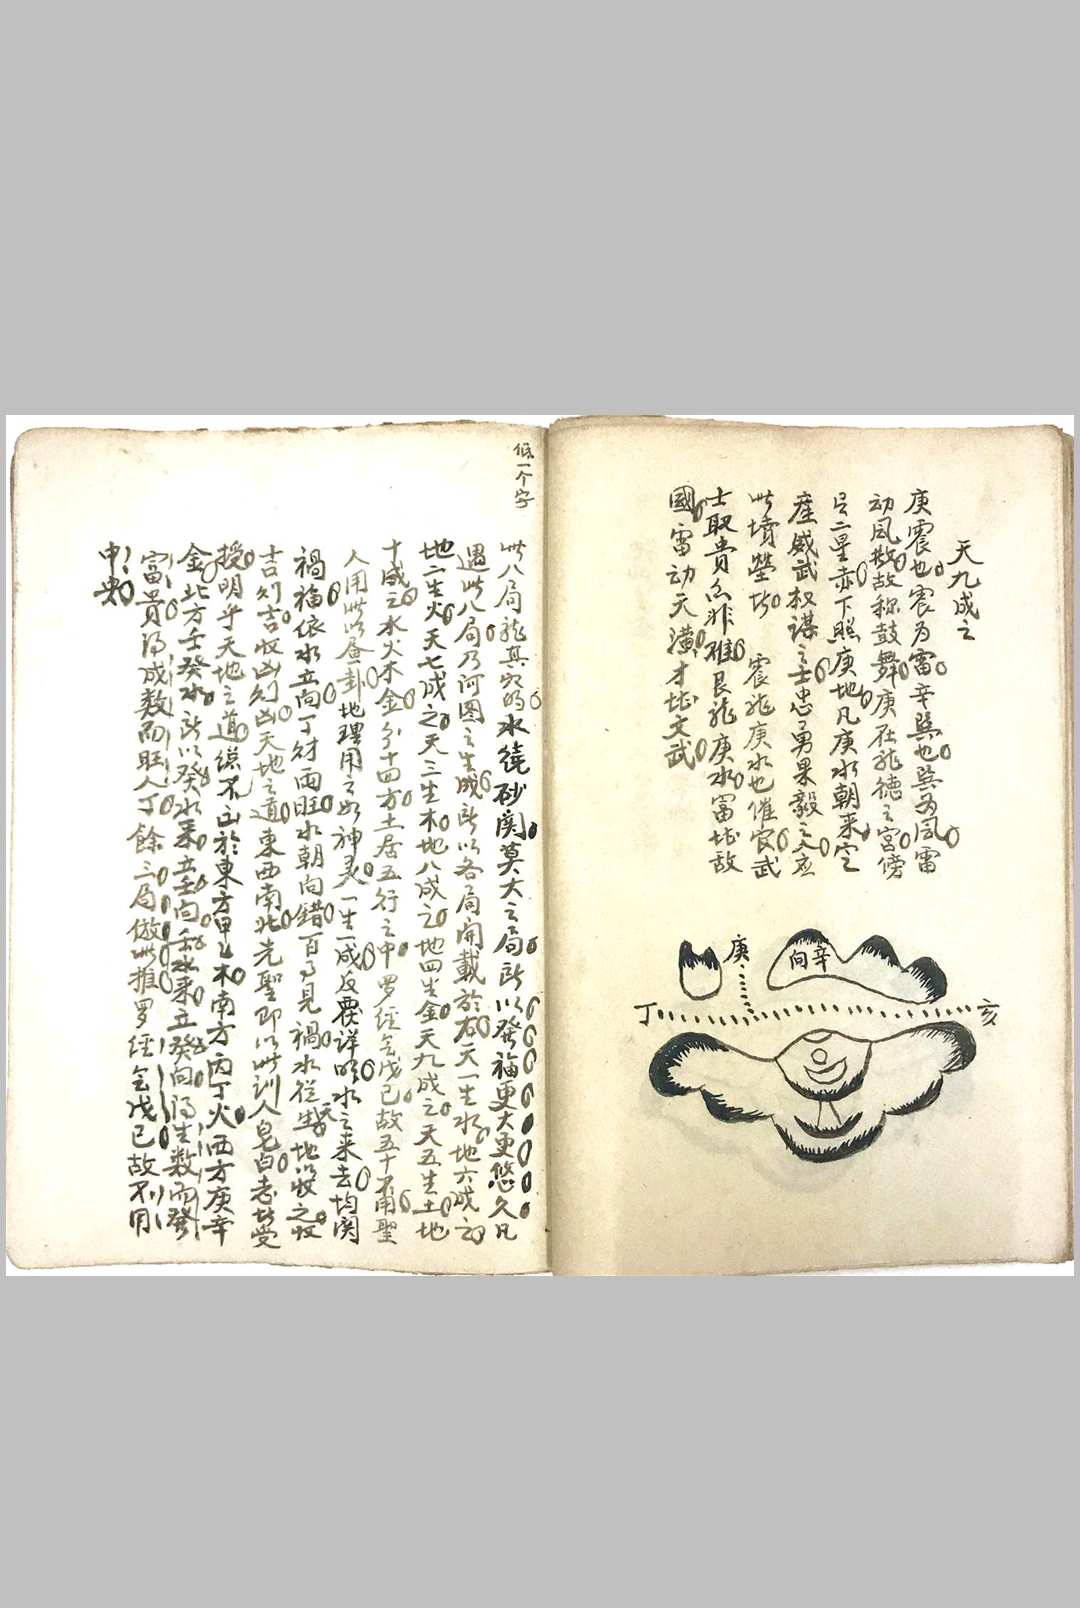 天九成之
庚震也震为雷辛巽也巽为風雷
动風散故称鼓舞庚在龍德之宮傍
二星赤下照庚地凡庚水朝来定
産威武权謀之士忠勇果毅之人应
此墳塋者 震龍庚水也催官武
士取貴亦非难艮龍庚水富堪敌
國雷动天潢才堪文武
庚
辛
向
丁
亥
低一个字
此八局龍真穴的水繞砂関莫大之局所以癸福更大更悠久凡
遇此八局乃河图之生成所以各局開載於右天一生水地六成之
地二生火天七成之天三生木地八成之地四生金天九成之天五生土地
十成之水火木金分十四方土居五行之中罗经無戊己故五十不用聖
人用此以疊卦地理用之如神灵一生一成反覆详明水之来去均関
禍福依水立向丁財両旺水朝向錯百見禍水從生地以收之收
吉則吉收凶則凶天地之道東西南北先聖即以此训人皂白志者受
授明乎天地之道總不出於東方甲乙木南方丙丁火西方庚辛
金北方壬癸水所以癸水来立壬向壬水来立癸向得生数而發
富貴得成数而旺人丁餘三局倣此推罗经無戊己故不用
中央